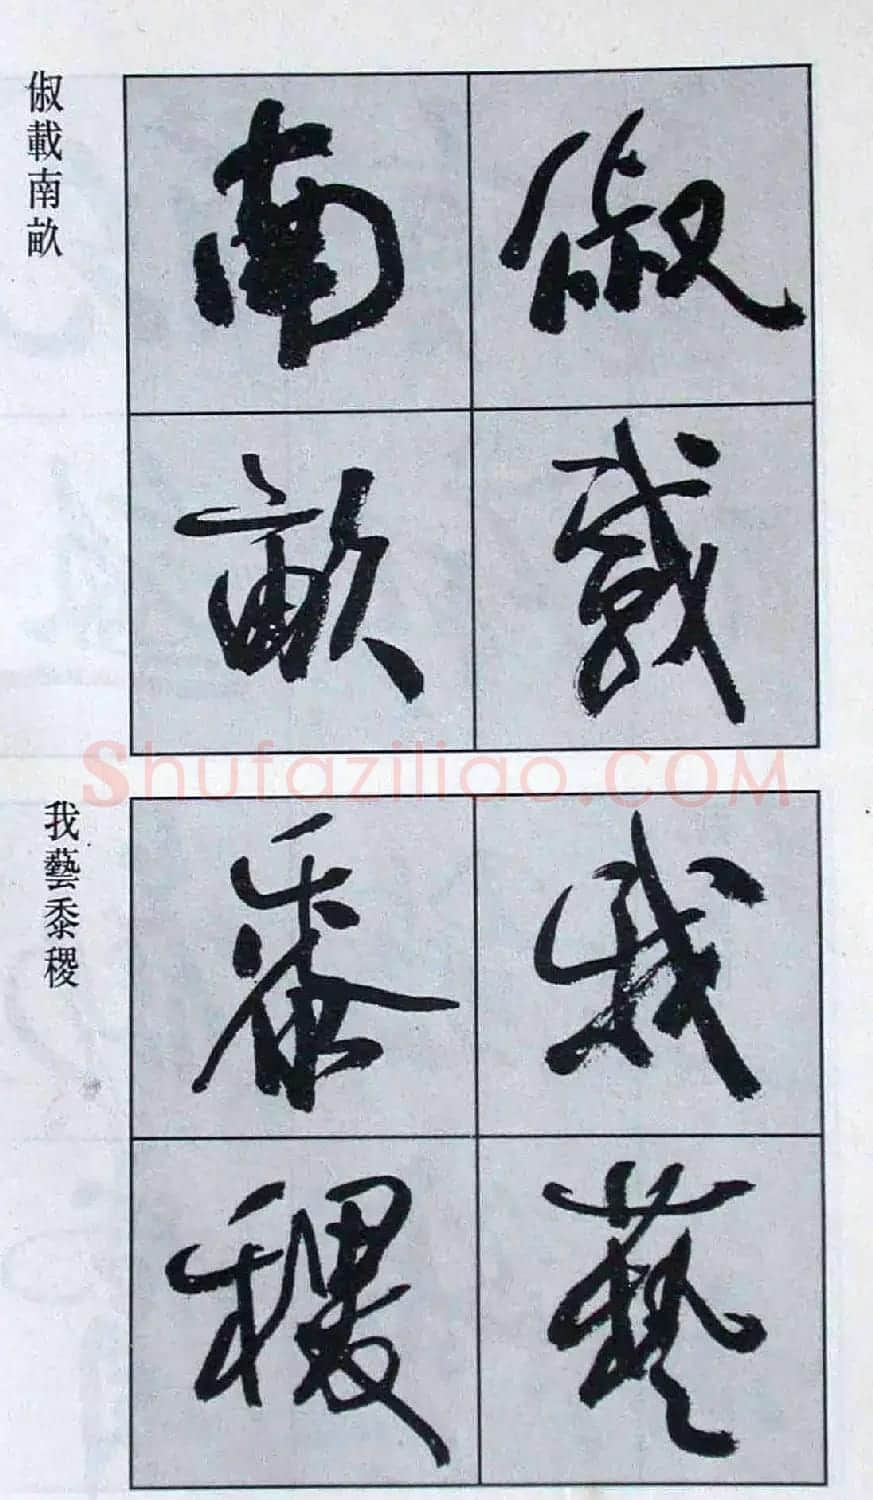 俶載
南畝
俶載南畝
Shufaziliao.COM
我藝
黍稷
我藝黍稷